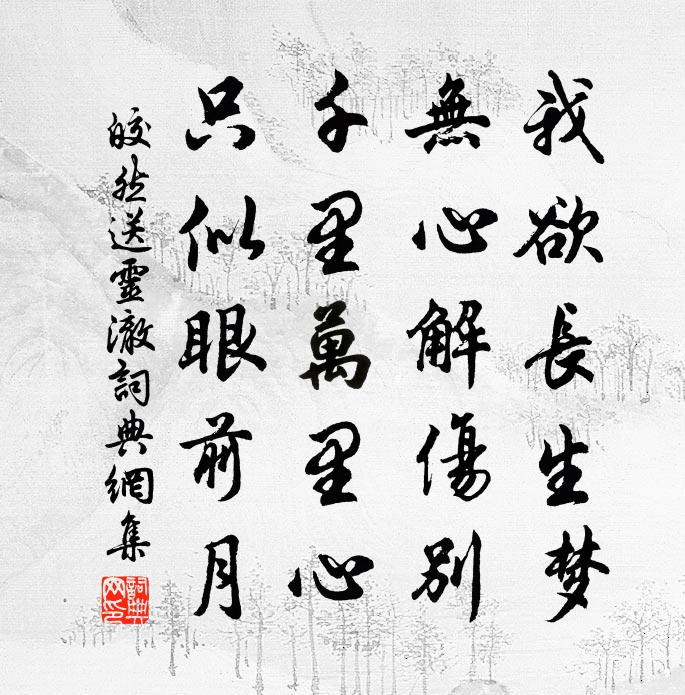 我欲长生梦
無心解傷别
千里萬里心
只似眼前月
皎然送靈澈詞典網集
詞典網印